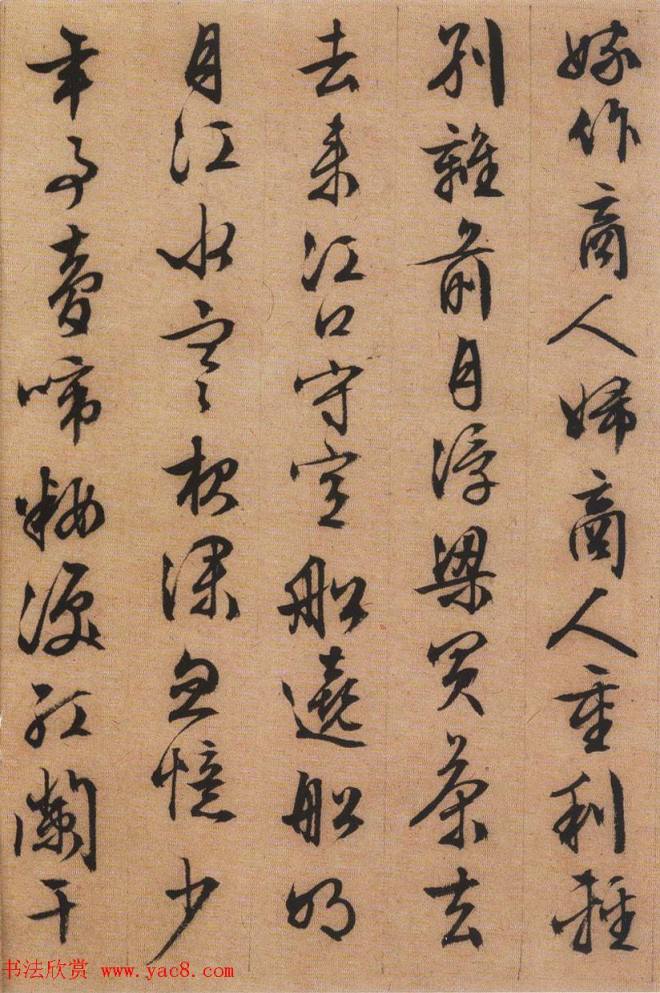 嫁作商人婦商人重利輕
別離前月浮梁買茶去
去来江口守空船遶船明
月江水寒夜深忽憶少
年事夢啼粧淚紅闌干
书法欣赏 www.yac8.com